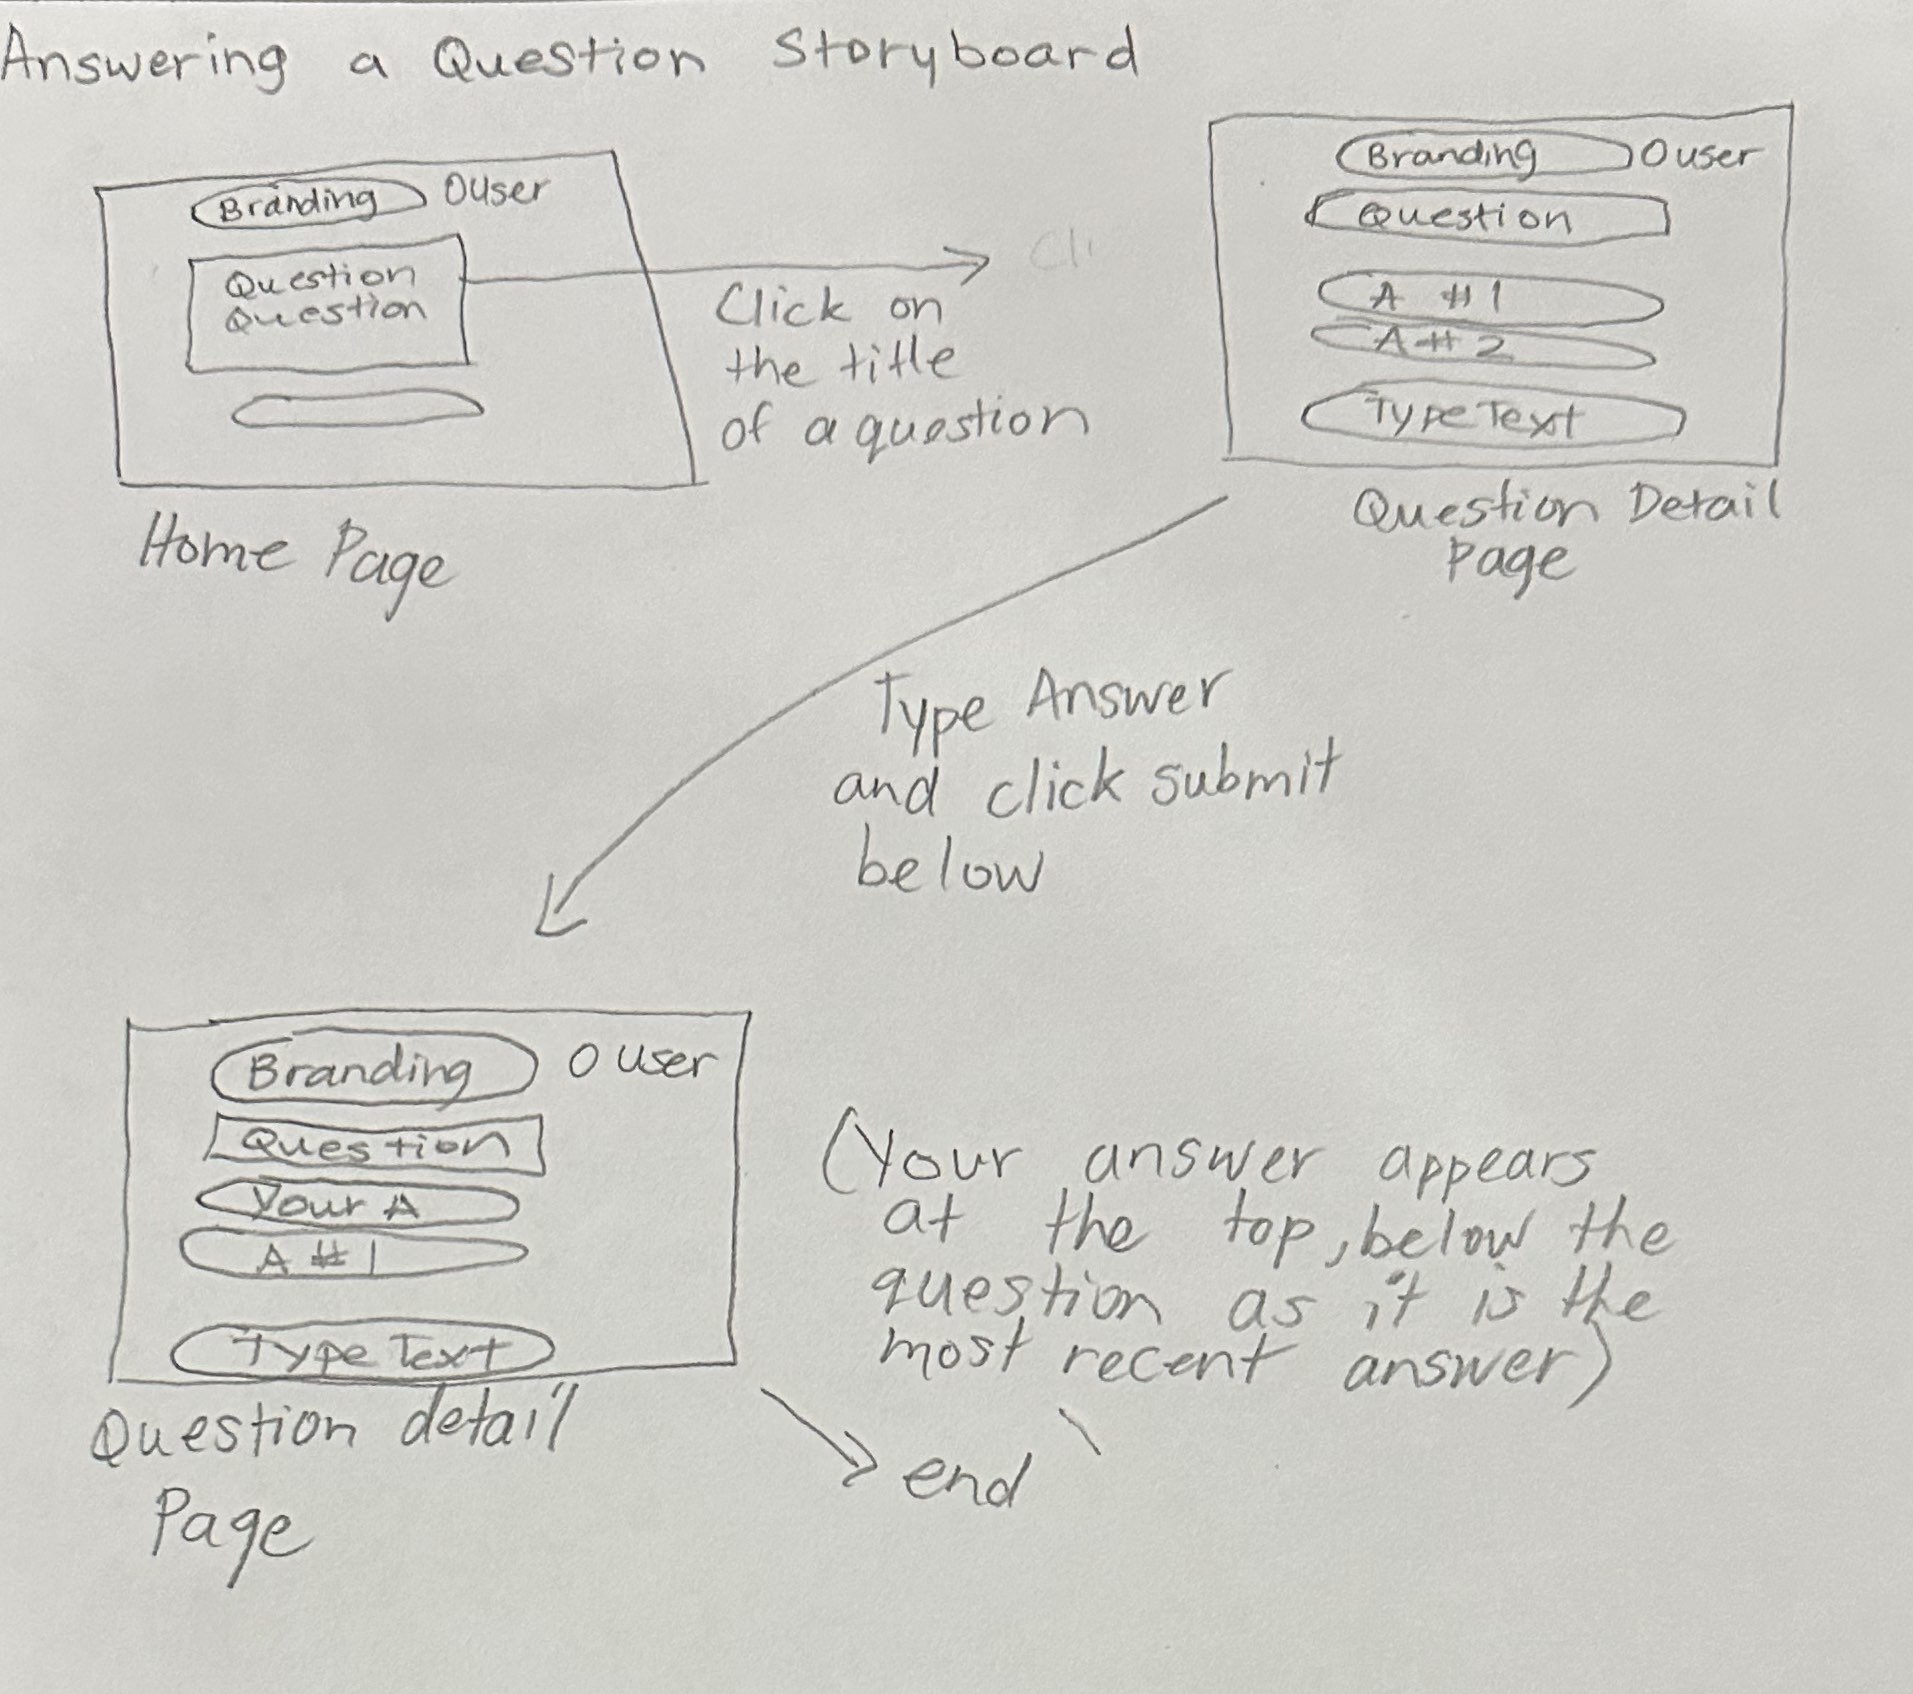 Answering a Question Storyboard
Branding O User
Question
Question
Home Page
Click on
the title
of a question
Cli
Branding O user
Question
A #1
A # 2
Type Text
Question Detail
Page
Type Answer
and click submit
below
Branding O user
Question
Your A
A # 1
Type Text
Question detail
Page
(Your answer appears
at the top, below the
question as it is the
most recent answer)
end